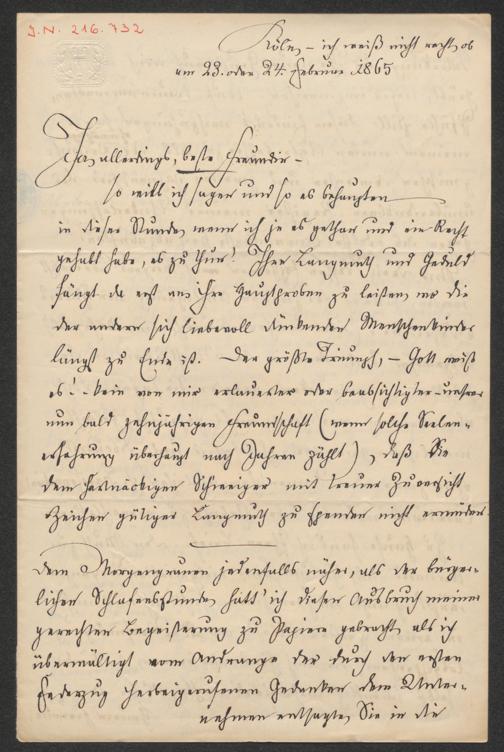 J.N. 216.732
Köln, – ich weiß nicht recht, ob
am 23. oder 24. Februar 1865
Ja, allerdings, beste Freundin –
so will ich sagen und so es behaupten
in dieser Stunde, wenn ich je es gethan und ein Recht
gehabt habe, es zu thun! Ihre Langmuth und Geduld
fängt da erst an ihre Hauptproben zu leisten, wo die
der andern sich liebevoll dünkenden Menschenkinder
längst zu Ende ist. Der größte Triumpf, – Gott weiß
es! – kein von mir erlauerter oder beabsichtigter – unsrer
nun bald zehnjährigen Freundschaft (wenn solche Seelen-
erfahrung überhaupt nach Jahren zählt), daß Sie
dem hartnäckigen Schweiger mit treuer Zuversicht
Zeichen gütiger Langmuth zu spenden nicht ermüden.
Dem Morgengrauen jedenfalls näher, als der bürger-
lichen Schlafensstunde, hätt' ich diesen Ausbruch meiner
gerechten Begeisterung zu Papiere gebracht, als ich
überwältigt vom Andrange der durch den ersten
Federzug herbeigerufenen Gedanken dem Unter-
nehmen entsagte, Sie in die